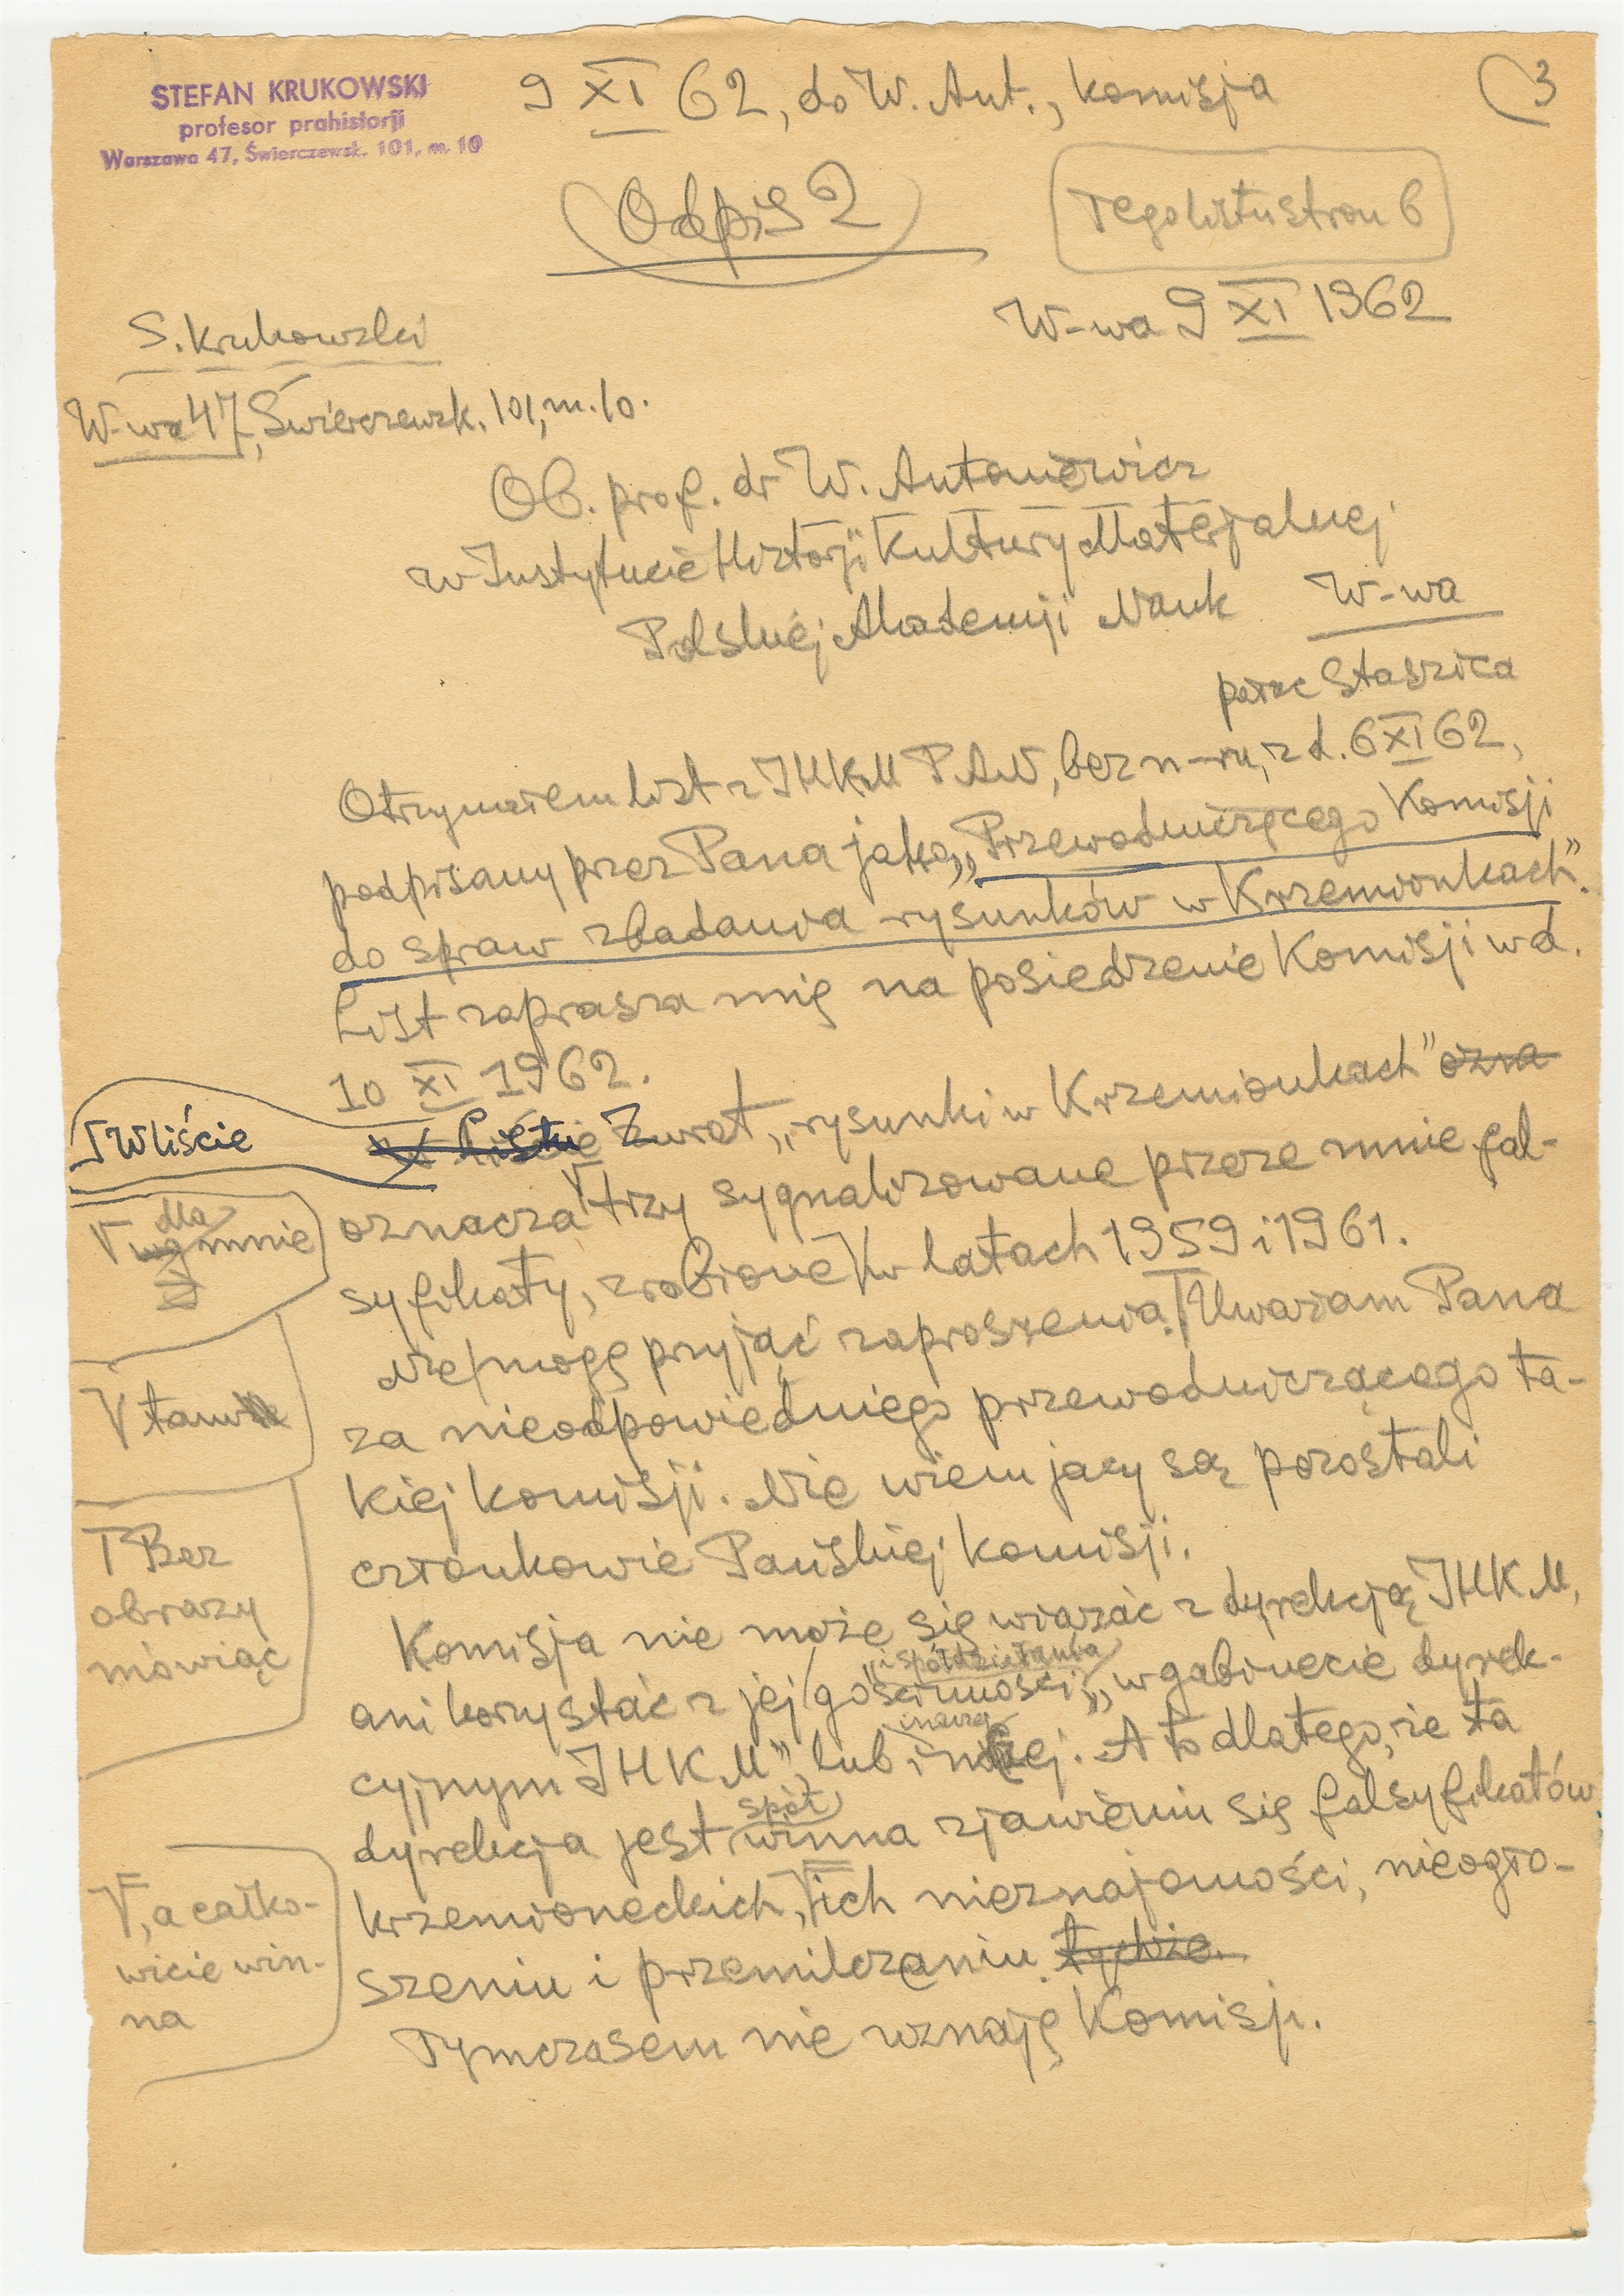 STEFAN KRUKOWSKI
profesor prahistorji
Warszawa 47, Świerczewsk. 101, m. 10
9 XI 62, do W. Ant., komisja
3
Odpis 2
Tego listu stron 6
W-wa 9 XI 1962
S. Krukowski
W-wa 47, Świerczewsk. 101, m. 10.
Ob. prof. dr W. Antoniewicz
w Instytucie Historji Kultury Materjalnej
Polskiej Akademji Nauk W-wa
pałac Staszica
Otrzymałem list z IHKM PAN, bez n-ru, z d. 6 XI 62,
podpisany przez Pana jako „Przewodniczącego Komisji
do spraw zbadania rysunków w Krzemionkach".
List zaprasza mię na posiedzenie Komisji w d.
10 XI 1962.
W liście
Zwrot „rysunki w Krzemionkach" ozna
oznacza trzy sygnalizowane przeze mnie fal-
dla
mnie
syfikaty, zrobione w latach 1959 i 1961.
Nie mogę przyjąć zaproszenia. Uważam Pana
za nieodpowiedniego przewodniczącego ta-
tam
kiej komisji. Nie wiem jacy są pozostali
członkowie Pańskiej komisji.
Bez
obrazy
mówiąc
Komisja nie może się wiązać z dyrekcją IHKM,
i spółdziałania
ani korzystać z jej gościnności „w gabinecie dyrek-
cyjnym IHKM" lub innej. A to dlatego, że ta
spół
dyrekcja jest winna zjawieniu się falsyfikatów
krzemioneckich, ich nieznajomości, nieogło-
, a całko-
wicie win-
na
szeniu i przemilczaniu. tychże.
Tymczasem nie uznaję Komisji.